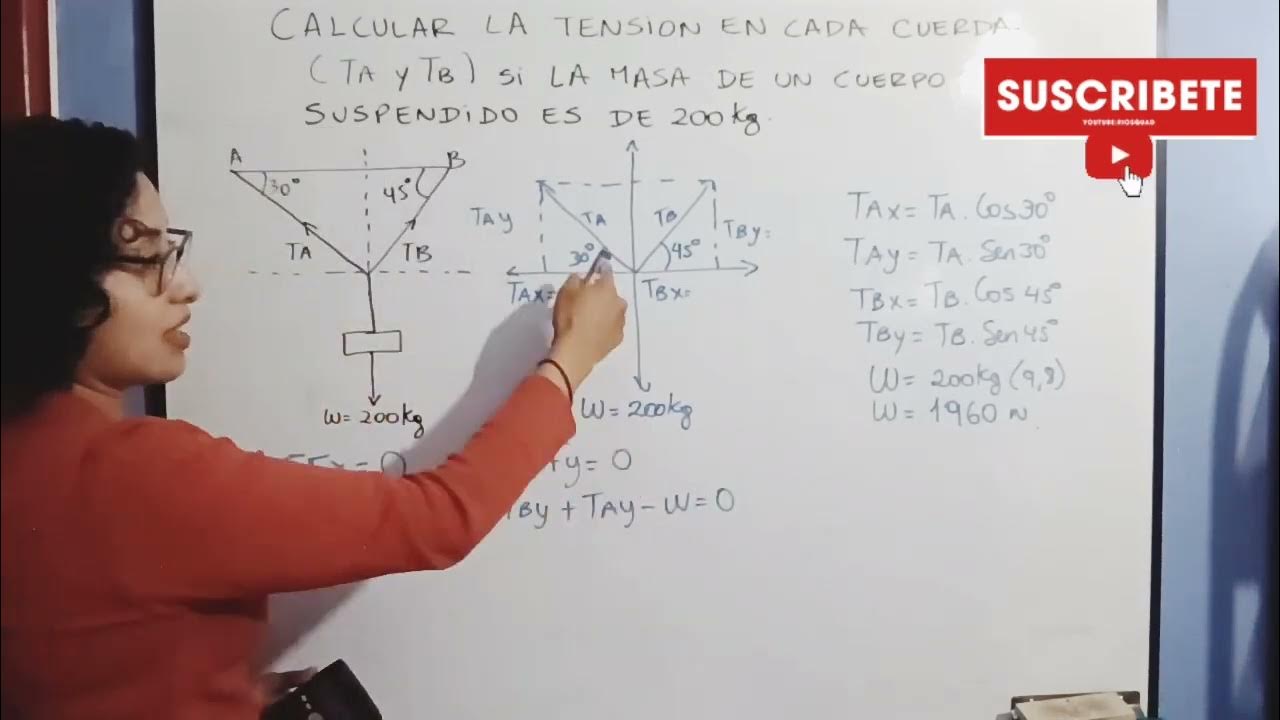 CALCULAR LA TENSION EN CADA CUERDA.
(TA y TB) Si LA MASA DE UN CUERPO
SUSPENDIDO ES DE 200kg.
SUSCRIBETE
A
B
30°
45°
TA
TB
W= 200kg
TAy
TA
TB
TBy=
30°
45°
TAx=
TBx=
W= 200kg
TAx= TA. Cos30°
TAy= TA. Sen30°
TBx= TB. Cos 45°
TBy= TB. Sen45°
W= 200kg (9,8)
W= 1960 N
= 0
y= 0
TBy + TAy - W= 0